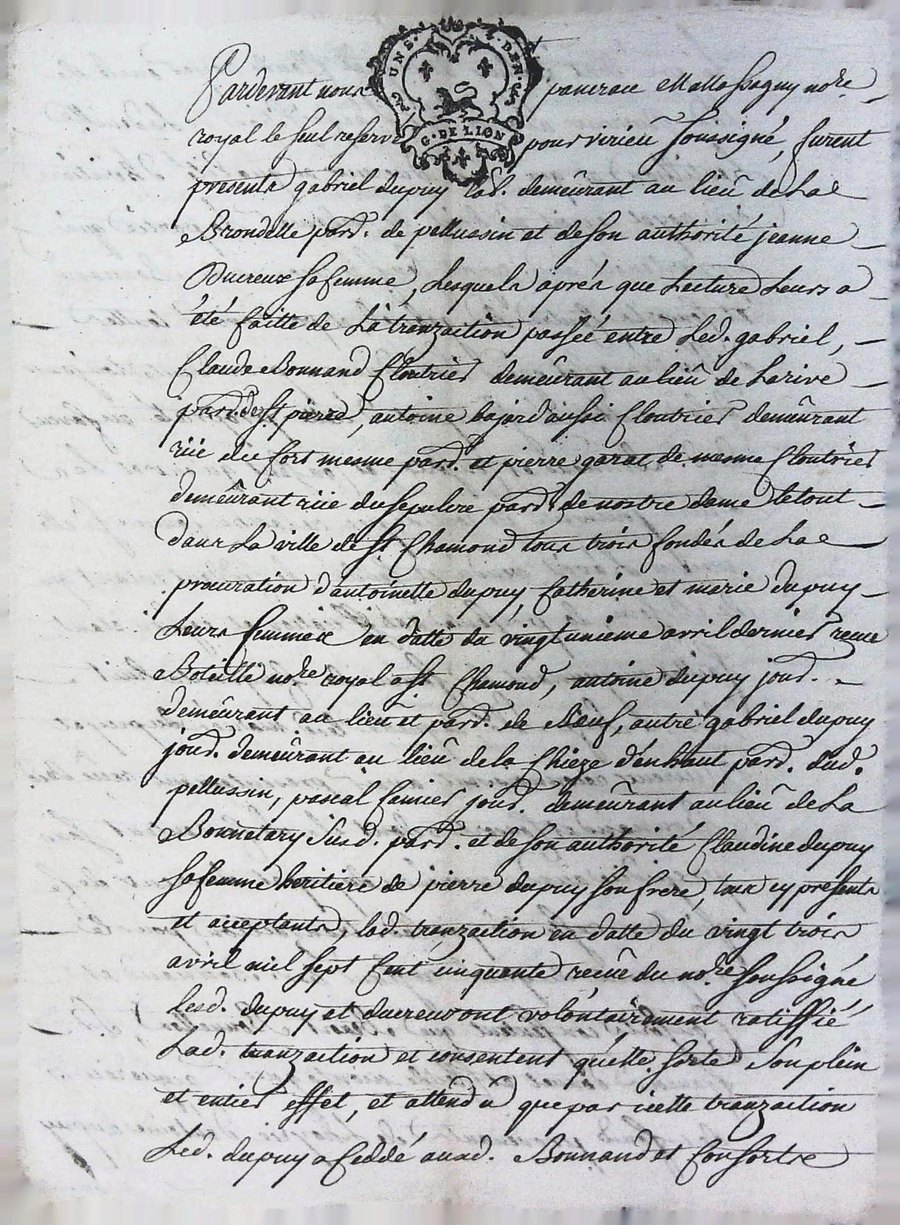 UN S. 4. DEN.
G. DE LION
Pardevant nous pancrace Mattassagny no.re
royal le seul reservé pour virieu soussigné, furent
presents gabriel dupuy lab.r demeurant au lieu de La
Brondelle parr. de pellussin et de son authorité jeanne
Ducreux sa femme, Lesquels aprés que Lecture Leurs a
été faitte de La tranzaction passée entre Led. gabriel,
Claude Bonnand Cloutrier demeurant au lieu de Larive
parr. de st pierre, antoine bajard aussi Cloutrier demeurant
rüe du fort mesme parr. et pierre garat de mesme Cloutrier
demeurant rüe du sepulcre parr. de nostre dame le tout
dans La ville de st Chamond tous trois fondés de La
procuration d'antoinette dupuy, Catherine et marie dupuy
Leurs femmes en datte du vingtunieme avril dernier receue
Boteille no.re royal a st Chamond, antoine dupuy jour.
demeurant au lieu et parr. de Beuf, autre gabriel dupuy
jour. demeurant au lieu de la Chieze d'enhaut parr. dud.
pellussin, pascal famier jour. demeurant au lieu de La
Bonnetary susd. parr. et de son authorité Claudine dupuy
sa femme heritiere de pierre dupuy son frere, tous cy presents
et acceptants, lad. tranzaction en datte du vingt trois
avril mil sept Cent cinquante receue du no.re soussigné
Lesd. dupuy et ducreux ont volontairement ratiffié
Lad. tranzaction et consentent qu'elle sorte son plein
et entier effet, et attendu que par icelle tranzaction
Led. dupuy a Ceddé aud. Bonnand et Consortre